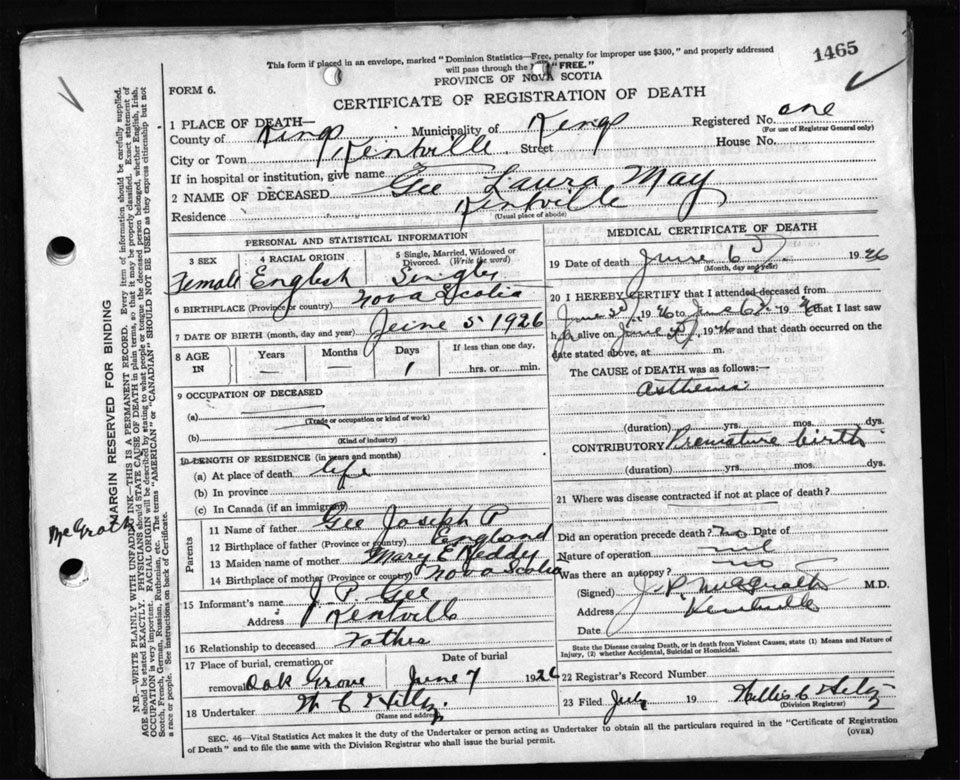 1465
This form if placed in an envelope, marked "Dominion Statistics—Free, penalty for improper use $300," and properly addressed
will pass through the "FREE."
PROVINCE OF NOVA SCOTIA
FORM 6.
CERTIFICATE OF REGISTRATION OF DEATH
1 PLACE OF DEATH—
Registered No. one
(For use of Registrar General only)
County of Kings Municipality of Kings
City or Town Kentville Street House No.
If in hospital or institution, give name
2 NAME OF DECEASED Gee Laura May
Residence Kentville
(Usual place of abode)
PERSONAL AND STATISTICAL INFORMATION
3 SEX 4 RACIAL ORIGIN 5 Single, Married, Widowed or Divorced. (Write the word)
Female English Single
6 BIRTHPLACE (Province or country) Nova Scotia
7 DATE OF BIRTH (month, day and year) June 5 1926
8 AGE IN Years Months Days If less than one day,
— — 1 hrs. or min.
9 OCCUPATION OF DECEASED
(a)
(Trade or occupation or kind of work)
(b)
(Kind of industry)
10 LENGTH OF RESIDENCE (in years and months)
(a) At place of death life
(b) In province
(c) In Canada (if an immigrant)
Parents
11 Name of father Gee Joseph P
12 Birthplace of father (Province or country) England
13 Maiden name of mother Mary E Reddy
14 Birthplace of mother (Province or country) Nova Scotia
15 Informant's name J P Gee
Address Kentville
16 Relationship to deceased Father
17 Place of burial, cremation, or removal Oak Grove
Date of burial
June 7 1926
18 Undertaker W C Hiltz
(Name and address)
MEDICAL CERTIFICATE OF DEATH
19 Date of death June 6 1926
(Month, day and year)
20 I HEREBY CERTIFY that I attended deceased from
June 1926 to June 6 19 that I last saw
h alive on June 19 and that death occurred on the
date stated above, at m.
The CAUSE of DEATH was as follows:—
asthenia
(duration) yrs. mos. dys.
CONTRIBUTORY Premature birth
(duration) yrs. mos. dys.
21 Where was disease contracted if not at place of death?
Did an operation precede death? no Date of
Nature of operation nil
Was there an autopsy? no
(Signed) M.D.
Address Kentville
Date
State the Disease causing Death, or in death from Violent Causes, state (1) Means and Nature of
Injury, (2) whether Accidental, Suicidal or Homicidal.
22 Registrar's Record Number
23 Filed July 19 Willis C Hiltz
(Division Registrar)
SEC. 46—Vital Statistics Act makes it the duty of the Undertaker or person acting as Undertaker to obtain all the particulars required in the "Certificate of Registration
of Death" and to file the same with the Division Registrar who shall issue the burial permit.
(OVER)
MARGIN RESERVED FOR BINDING
N.B.—WRITE PLAINLY WITH UNFADING INK—THIS IS A PERMANENT RECORD. Every item of information should be carefully supplied.
AGE should be stated EXACTLY. PHYSICIANS should STATE CAUSE OF DEATH in plain terms, so that it may be properly classified. Exact statement of
OCCUPATION is very important. RACIAL ORIGIN will be described by stating to what people or tongue the deceased person belonged, whether English, Irish,
Scotch, French, German, Russian, Ruthenian, etc. The terms "AMERICAN" or "CANADIAN" SHOULD NOT BE USED as they express citizenship but not
a race or people. See instructions on back of Certificate.
McGrath